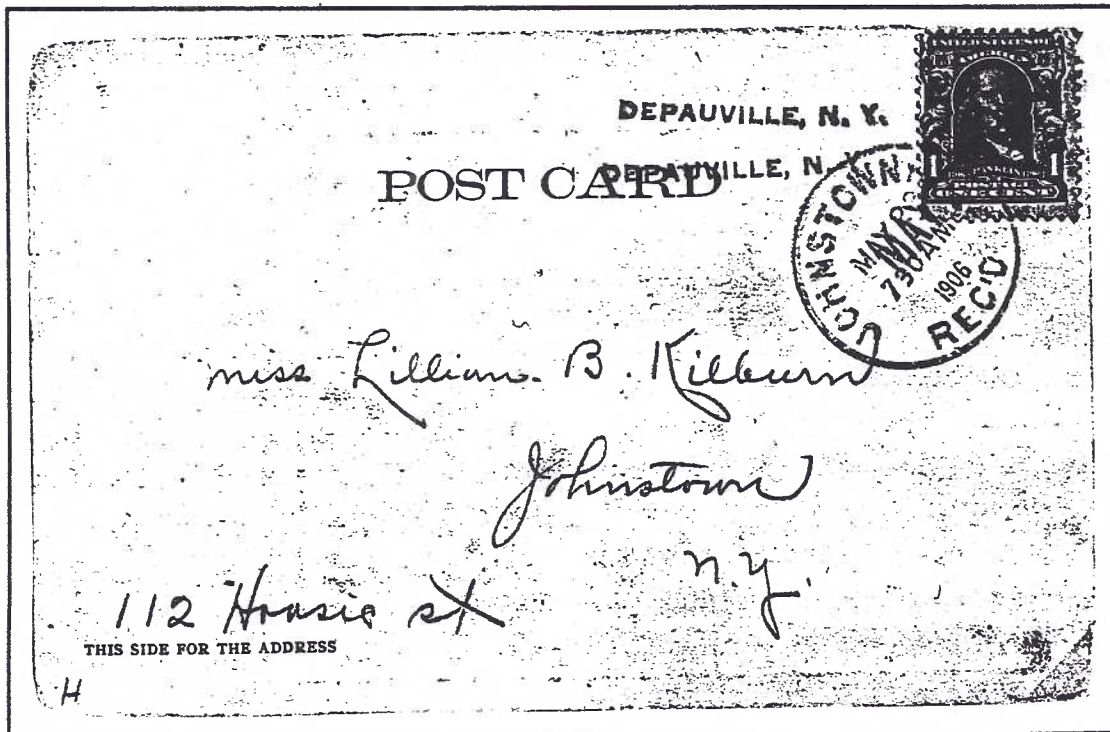 DEPAUVILLE, N. Y.
DEPAUVILLE, N. Y.
POST CARD
JOHNSTOWN
MAY
730 AM
1906
REC'D
1 1
ONE CENT
miss Lillian. B. Kilburn
Johnstown
n.y.
112 Hoosic st
THIS SIDE FOR THE ADDRESS
H